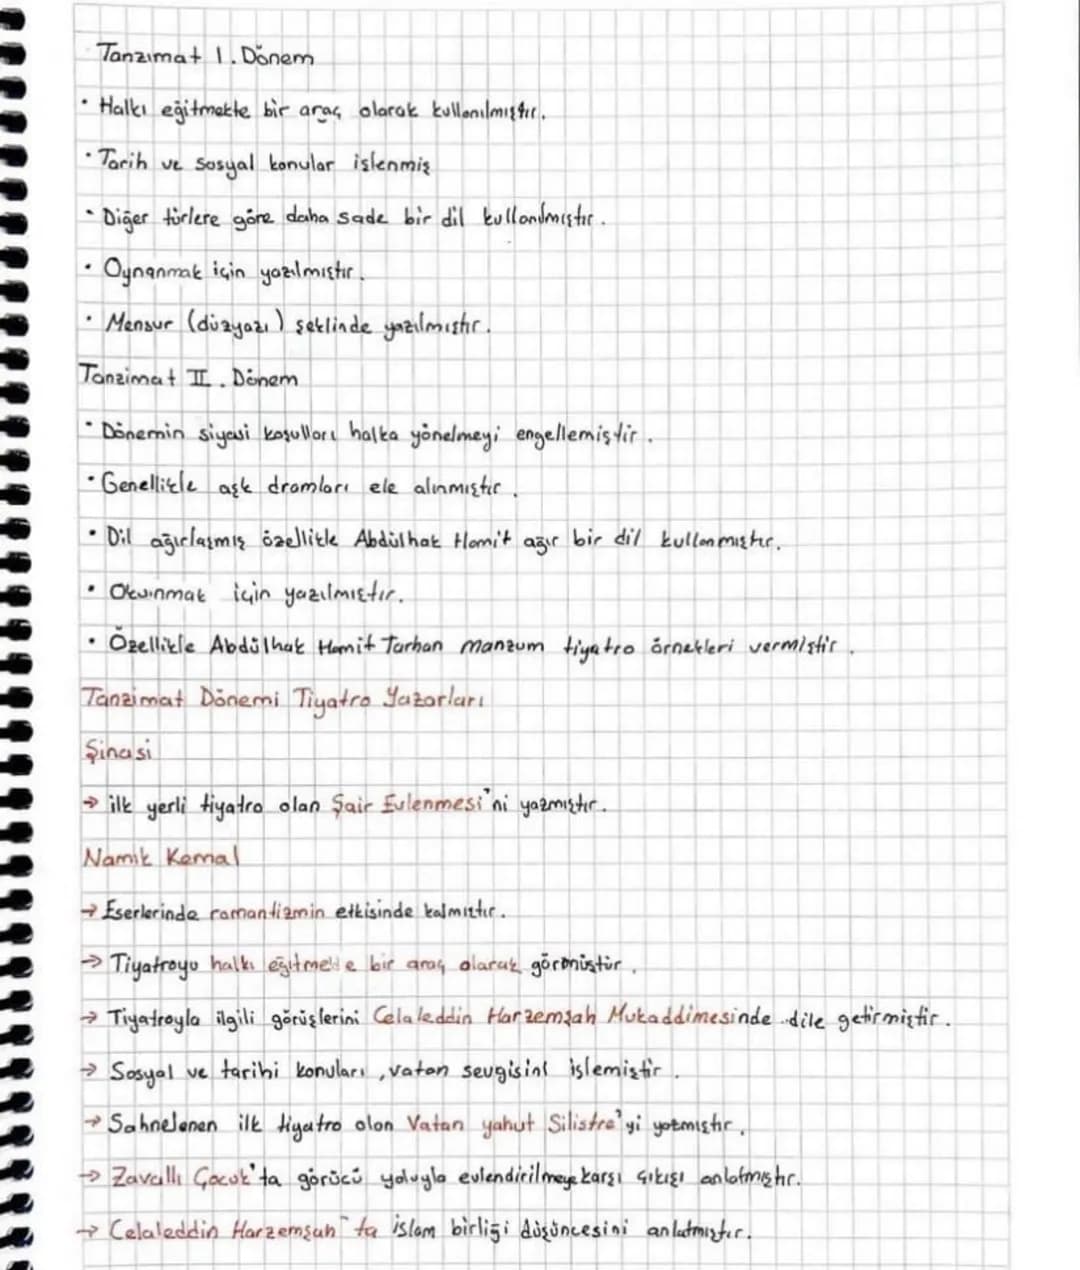 Tanzımat I. Dönem
• Halkı eğitmekte bir araç olarak kullanılmıştır.
• Tarih ve sosyal konular işlenmiş
• Diğer türlere göre daha sade bir dil kullanılmıştır.
• Oynanmak için yazılmıştır.
• Mensur (düzyazı) şeklinde yazılmıştır.
Tanzimat II. Dönem
• Dönemin siyasi koşulları halka yönelmeyi engellemiştir.
• Genellikle aşk dramları ele alınmıştır.
• Dil ağırlaşmış özellikle Abdülhak Hamit ağır bir dil kullanmıştır.
• Okunmak için yazılmıştır.
• Özellikle Abdülhak Hamit Tarhan manzum tiyatro örnekleri vermiştir.
Tanzimat Dönemi Tiyatro Yazarları
Şinasi
→ ilk yerli tiyatro olan Şair Evlenmesi'ni yazmıştır.
Namık Kemal
→ Eserlerinde romantizmin etkisinde kalmıştır.
→ Tiyatroyu halkı eğitmede bir araç olarak görmüştür.
→ Tiyatroyla ilgili görüşlerini Celaleddin Harzemşah Mukaddimesinde dile getirmiştir.
→ Sosyal ve tarihi konuları, vatan sevgisini işlemiştir.
→ Sahnelenen ilk tiyatro olan Vatan yahut Silistre'yi yazmıştır.
→ Zavallı Çocuk'ta görücü yoluyla evlendirilmeye karşı çıkışı anlatmıştır.
→ Celaleddin Harzemşah'ta islam birliği düşüncesini anlatmıştır.